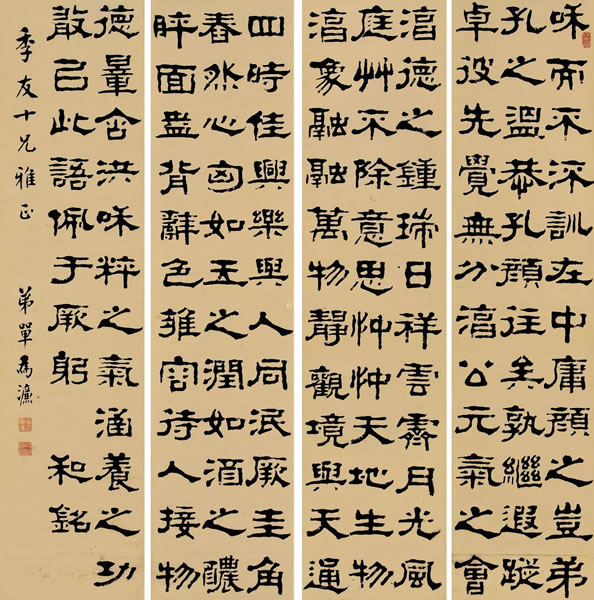 咊而不流訓在中庸顏之豈弟
孔之溫恭孔顏往矣孰繼遐蹤
卓彼先覺無分淳公元氣之會
淳德之鍾瑞日祥雲霽月光風
庭艸不除意思忡忡天地生物
淳象融融萬物靜觀境與天通
四時佳興樂與人同泯厥圭角
春然心匈如玉之潤如酒之醲
睟面盎背辭色雍容待人接物
德量含洪咊粹之氣涵養之功
敢以此語佩于厥躬 和銘
季友十兄雅正 弟單為濂